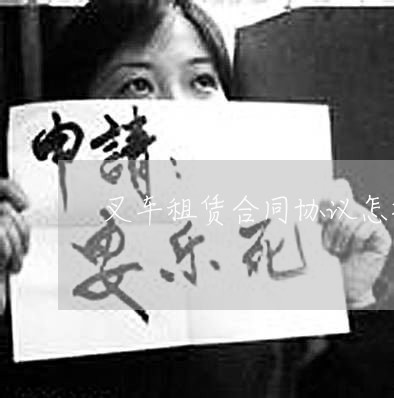 申請：
叉车租赁合同协议怎
安乐死